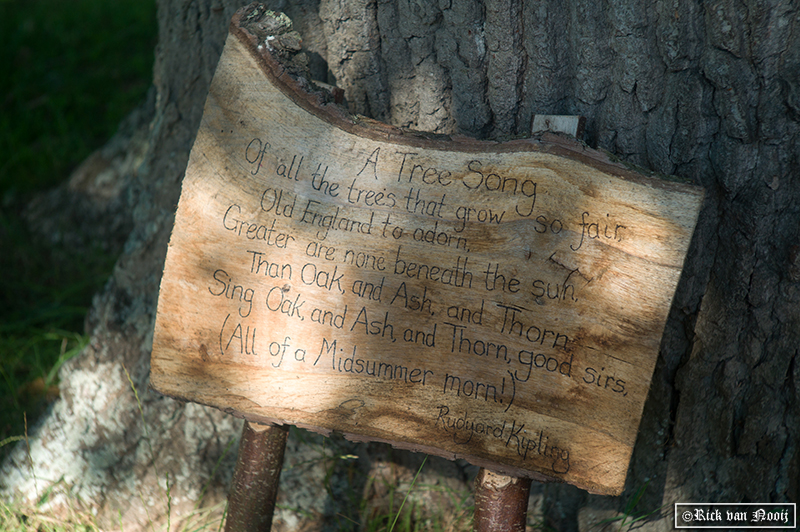 A Tree Song
Of all the trees that grow so fair,
Old England to adorn,
Greater are none beneath the sun,
Than Oak, and Ash, and Thorn.
Sing Oak, and Ash, and Thorn, good sirs,
(All of a Midsummer morn!)
Rudyard Kipling
©Rick van Nooij